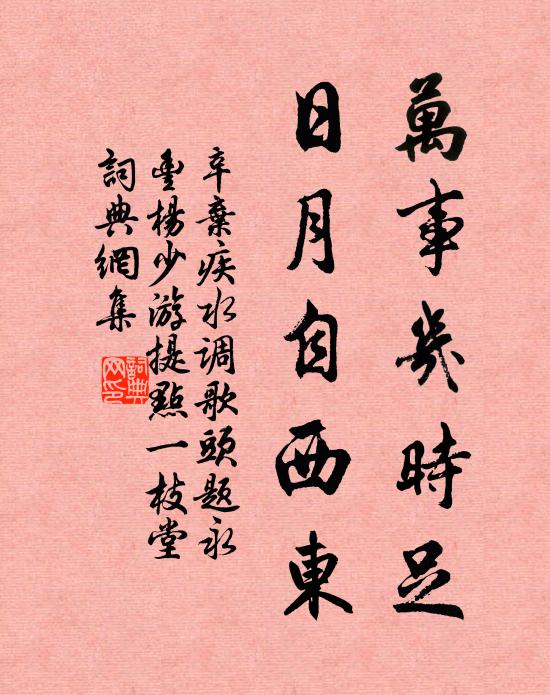 萬事幾時足
日月自西東
辛棄疾水调歌頭题永
豊楊少游提點一枝堂
詞典網集
詞典網印